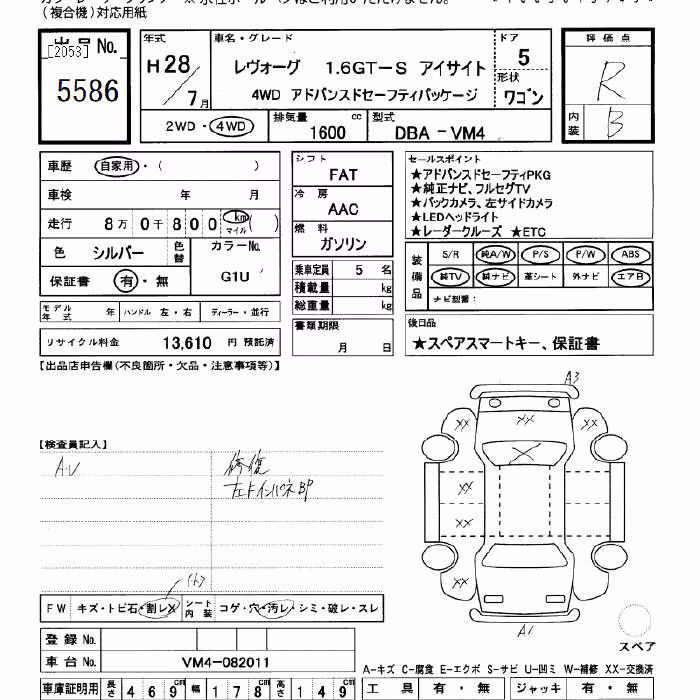 (複合機)対応用紙
出品 No.
[2053]
5586
年式
H28/7月
車名・グレード
レヴォーグ 1.6GT-S アイサイト
4WD アドバンスドセーフティパッケージ
ドア
5
形状
ワゴン
2WD・4WD
排気量 1600 cc
型式 DBA-VM4
評価点
R
内装 B
車歴 自家用・( )
車検 年 月
走行 8万0千800 km マイル ( )
色 シルバー 色替 カラーNo. G1U
保証書 有・無
シフト
FAT
冷房
AAC
燃料
ガソリン
乗車定員 5 名
積載量 kg
総重量 kg
書類期限
月 日
セールスポイント
★アドバンスドセーフティPKG
★純正ナビ、フルセグTV
★バックカメラ、左サイドカメラ
★LEDヘッドライト
★レーダークルーズ ★ETC
装備品
S/R 純A/W P/S P/W ABS
純TV 純ナビ 革シート 外ナビ エアB
ナビ型番:
モデル年式 年 ハンドル 左・右 ディーラー・並行
リサイクル料金 13,610 円 預託済
後日品
★スペアスマートキー、保証書
【出品店申告欄(不良箇所・欠品・注意事項等)】
【検査員記入】
A.U
修復
左Fインパネ BP
A3
XX XX XX
X
XX
XX
XX XX
A1
スペア
FW キズ・トビ石・割レX シート内装 コゲ・穴・汚レ・シミ・破レ・スレ
登録 No.
車台 No. VM4-082011
A-キズ C-腐食 E-エクボ S-サビ U-凹ミ W-補修 XX-交換済
車庫証明用 長さ 469cm 幅 178cm 高さ 149cm
工具 有・無 ジャッキ 有・無